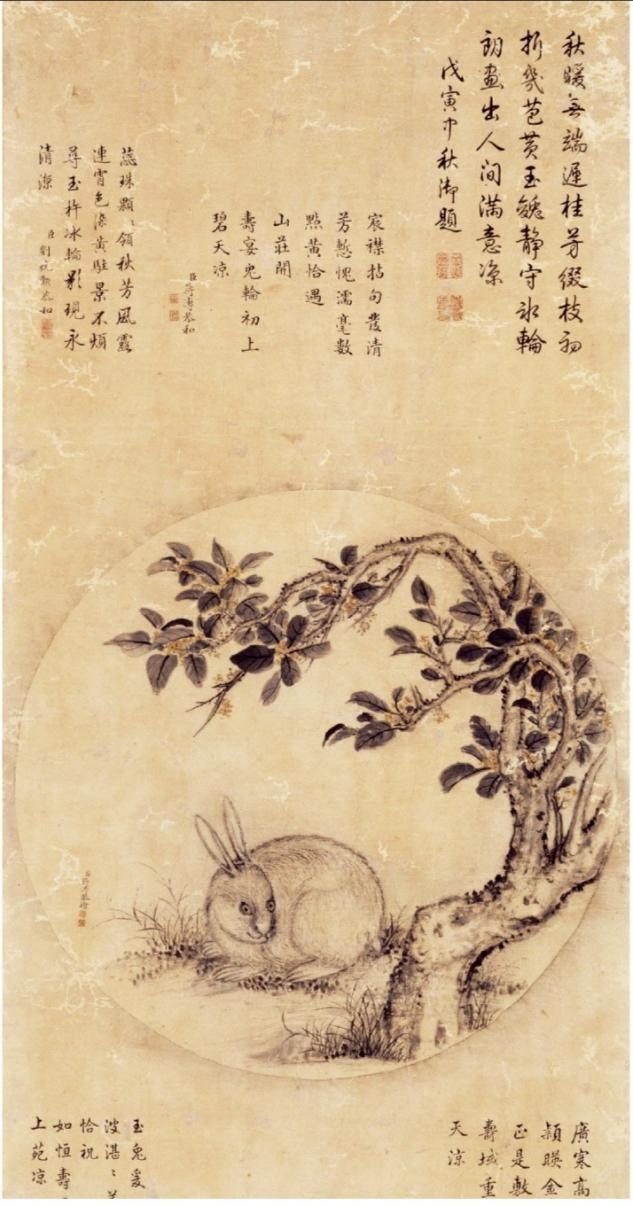 秋暖無端遲桂芳綴枝初
折幾苞黃玉靜守冰輪
朗畫出人間滿意涼
戊寅中秋御題
宸襟拈句清
芳慙愧濡毫數
點黃恰遇
山莊開
壽宴兔輪初上
碧天涼
臣蔣溥恭和
蕊珠顆〻領秋芳風露
連宵色染黃駐景不煩
尋玉杵冰輪影現永
清涼
臣劉統勳恭和
臣蔣溥恭繪
廣寒高
暎金
正是敷
壽域重
天涼
玉兔爰
波湛〻
恰祝
如恒壽
上苑涼